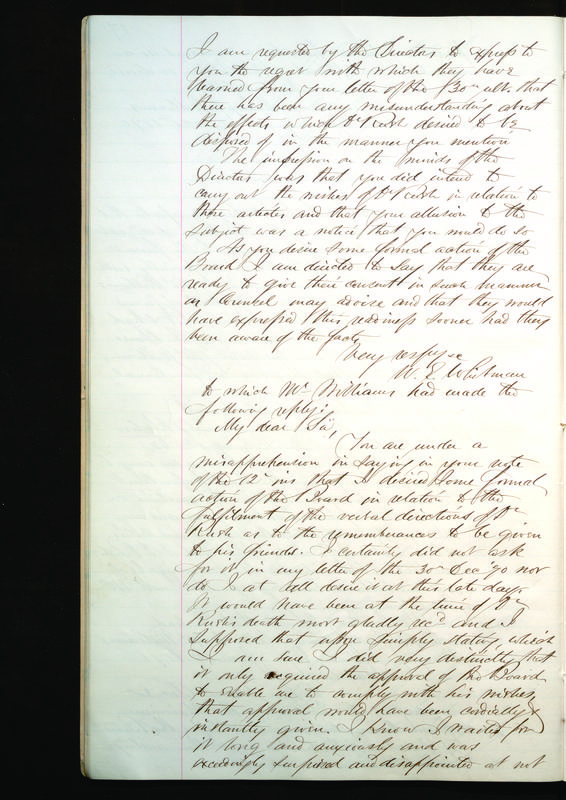 I am requested by the Directors to express to
you the regret with which they have
learned from your letter of the 30th ult. that
there has been any misunderstanding about
the effects which Dr Rush desired to be
disposed of in the manner you mention
The impression on the minds of the
Directors was that you did intend to
carry out the wishes of Dr Rush in relation to
those articles and that your allusion to the
subject was a notice that you would do so
As you desire some formal action of the
Board I am directed to say that they are
ready to give their consent in such manner
as Counsel may advise and that they would
have expressed this readiness sooner had they
been aware of the facts
Very respy &c
W. E. Whitman
to which Mr Williams had made the
following reply:
My dear Sir,
You are under a
misapprehension in saying in your note
of the 12 ins that I desired some formal
action of the Board in relation to the
fulfilment of the verbal directions of Dr
Rush as to the rememberances to be given
to his friends. I certainly did not ask
for it in my letter of the 30th Dec '70 nor
do I at all desire it at this late day.
It would have been at the time of Dr
Rush's death most gladly recd and I
supposed that upon simply stating, which
I am sure I did very distinctly, that
it only required the approval of the Board
to enable me to comply with his wishes
that approval would have been cordially &
instantly given. I know I waited for
it long and anxiously and was
exceedingly surprised and disappointed at not